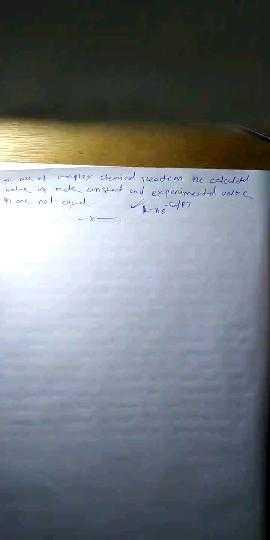 of complex chemical reactions the calculated
value of rate constant and experimental value
are not equal